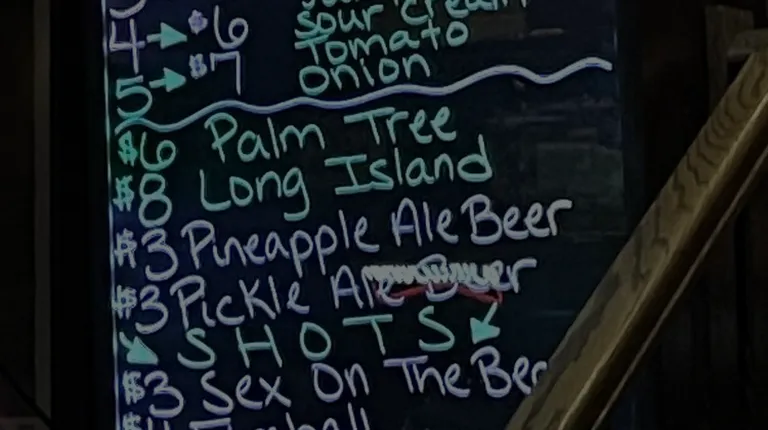 4 → $6 sour cream
Tomato
5 → $7 onion
$6 Palm Tree
$8 Long Island
$3 Pineapple Ale Beer
$3 Pickle Ale Beer
SHOTS
$3 Sex On The